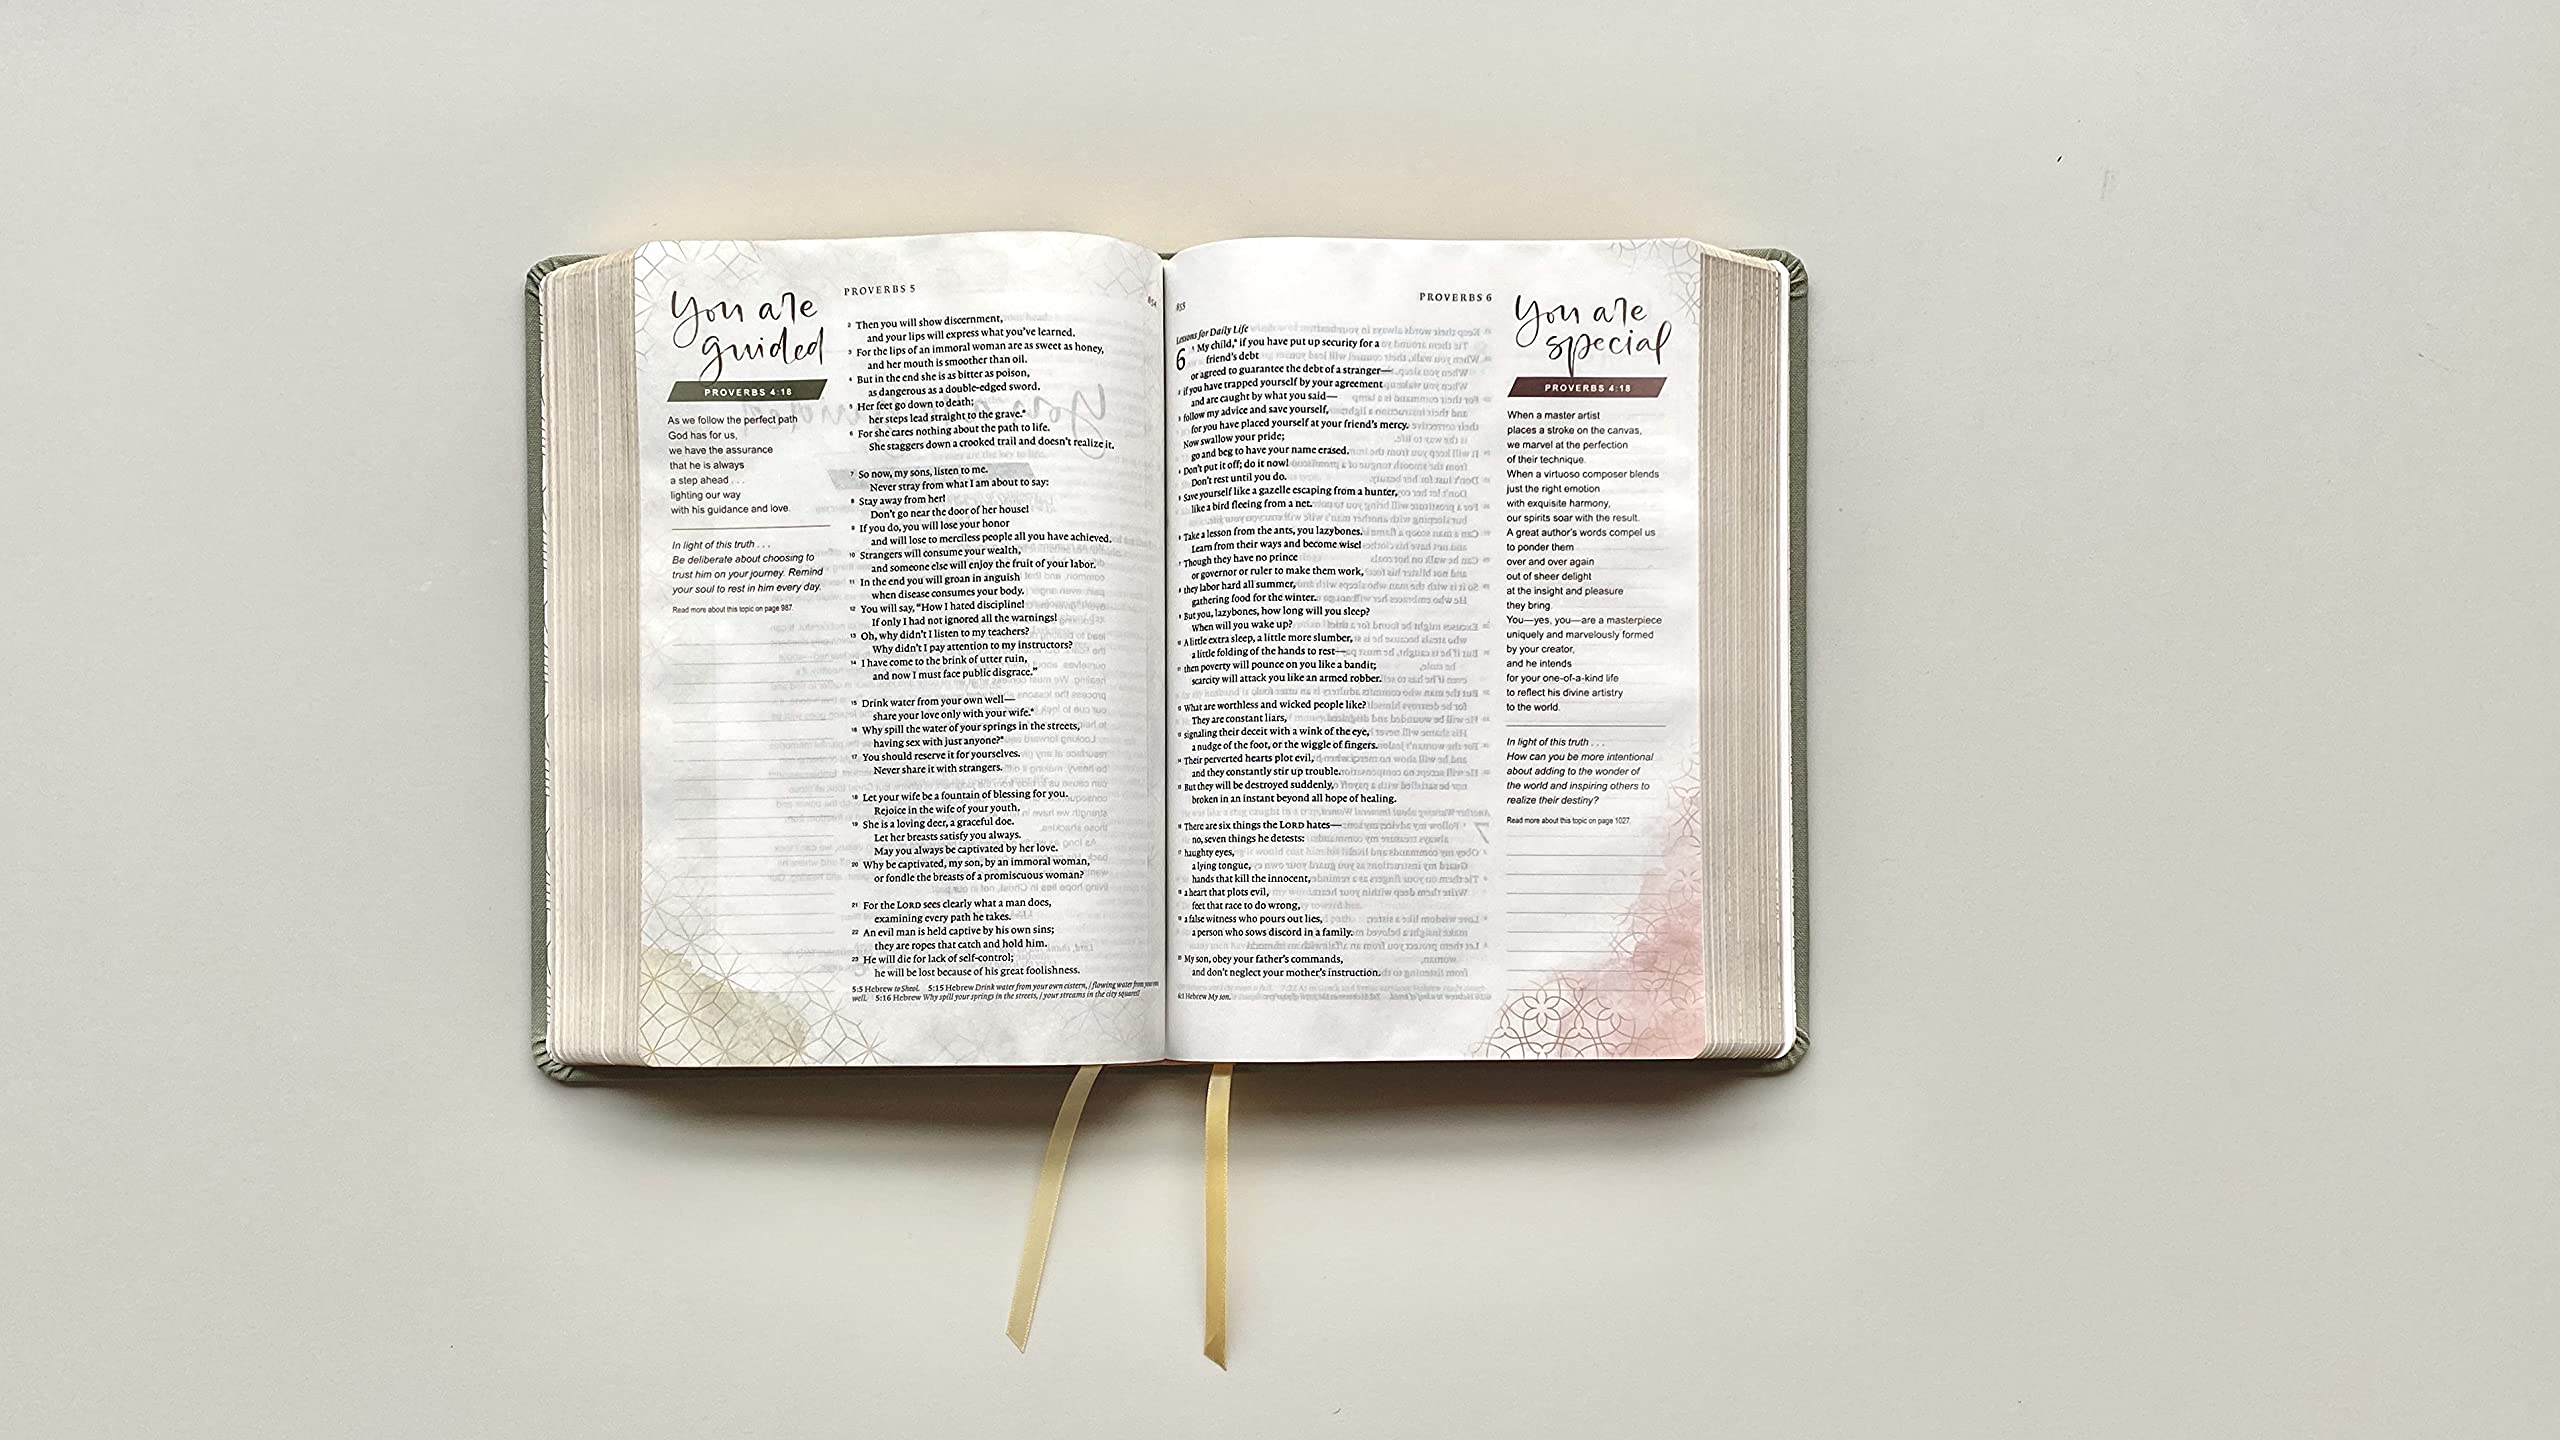 You are
guided
PROVERBS 4:18
As we follow the perfect path
God has for us,
we have the assurance
that he is always
a step ahead . . .
lighting our way
with his guidance and love.
In light of this truth . . .
Be deliberate about choosing to
trust him on your journey. Remind
your soul to rest in him every day.
Read more about this topic on page 987.
PROVERBS 5
854
2 Then you will show discernment,
and your lips will express what you've learned.
3 For the lips of an immoral woman are as sweet as honey,
and her mouth is smoother than oil.
4 But in the end she is as bitter as poison,
as dangerous as a double-edged sword.
5 Her feet go down to death;
her steps lead straight to the grave.*
6 For she cares nothing about the path to life.
She staggers down a crooked trail and doesn't realize it.
7 So now, my sons, listen to me.
Never stray from what I am about to say:
8 Stay away from her!
Don't go near the door of her house!
9 If you do, you will lose your honor
and will lose to merciless people all you have achieved.
10 Strangers will consume your wealth,
and someone else will enjoy the fruit of your labor.
11 In the end you will groan in anguish
when disease consumes your body.
12 You will say, "How I hated discipline!
If only I had not ignored all the warnings!
13 Oh, why didn't I listen to my teachers?
Why didn't I pay attention to my instructors?
14 I have come to the brink of utter ruin,
and now I must face public disgrace."
15 Drink water from your own well—
share your love only with your wife.*
16 Why spill the water of your springs in the streets,
having sex with just anyone?*
17 You should reserve it for yourselves.
Never share it with strangers.
18 Let your wife be a fountain of blessing for you.
Rejoice in the wife of your youth.
19 She is a loving deer, a graceful doe.
Let her breasts satisfy you always.
May you always be captivated by her love.
20 Why be captivated, my son, by an immoral woman,
or fondle the breasts of a promiscuous woman?
21 For the LORD sees clearly what a man does,
examining every path he takes.
22 An evil man is held captive by his own sins;
they are ropes that catch and hold him.
23 He will die for lack of self-control;
he will be lost because of his great foolishness.
5:5 Hebrew to Sheol. 5:15 Hebrew Drink water from your own cistern, / flowing water from your own
well. 5:16 Hebrew Why spill your springs in the streets, / your streams in the city squares?
855
PROVERBS 6
Lessons for Daily Life
6 1 My child,* if you have put up security for a
friend's debt
or agreed to guarantee the debt of a stranger—
2 if you have trapped yourself by your agreement
and are caught by what you said—
3 follow my advice and save yourself,
for you have placed yourself at your friend's mercy.
Now swallow your pride;
go and beg to have your name erased.
4 Don't put it off; do it now!
Don't rest until you do.
5 Save yourself like a gazelle escaping from a hunter,
like a bird fleeing from a net.
6 Take a lesson from the ants, you lazybones.
Learn from their ways and become wise!
7 Though they have no prince
or governor or ruler to make them work,
8 they labor hard all summer,
gathering food for the winter.
9 But you, lazybones, how long will you sleep?
When will you wake up?
10 A little extra sleep, a little more slumber,
a little folding of the hands to rest—
11 then poverty will pounce on you like a bandit;
scarcity will attack you like an armed robber.
12 What are worthless and wicked people like?
They are constant liars,
13 signaling their deceit with a wink of the eye,
a nudge of the foot, or the wiggle of fingers.
14 Their perverted hearts plot evil,
and they constantly stir up trouble.
15 But they will be destroyed suddenly,
broken in an instant beyond all hope of healing.
16 There are six things the LORD hates—
no, seven things he detests:
17 haughty eyes,
a lying tongue,
hands that kill the innocent,
18 a heart that plots evil,
feet that race to do wrong,
19 a false witness who pours out lies,
a person who sows discord in a family.
20 My son, obey your father's commands,
and don't neglect your mother's instruction.
6:1 Hebrew My son.
You are
special
PROVERBS 4:18
When a master artist
places a stroke on the canvas,
we marvel at the perfection
of their technique.
When a virtuoso composer blends
just the right emotion
with exquisite harmony,
our spirits soar with the result.
A great author's words compel us
to ponder them
over and over again
out of sheer delight
at the insight and pleasure
they bring.
You—yes, you—are a masterpiece
uniquely and marvelously formed
by your creator,
and he intends
for your one-of-a-kind life
to reflect his divine artistry
to the world.
In light of this truth . . .
How can you be more intentional
about adding to the wonder of
the world and inspiring others to
realize their destiny?
Read more about this topic on page 1027.